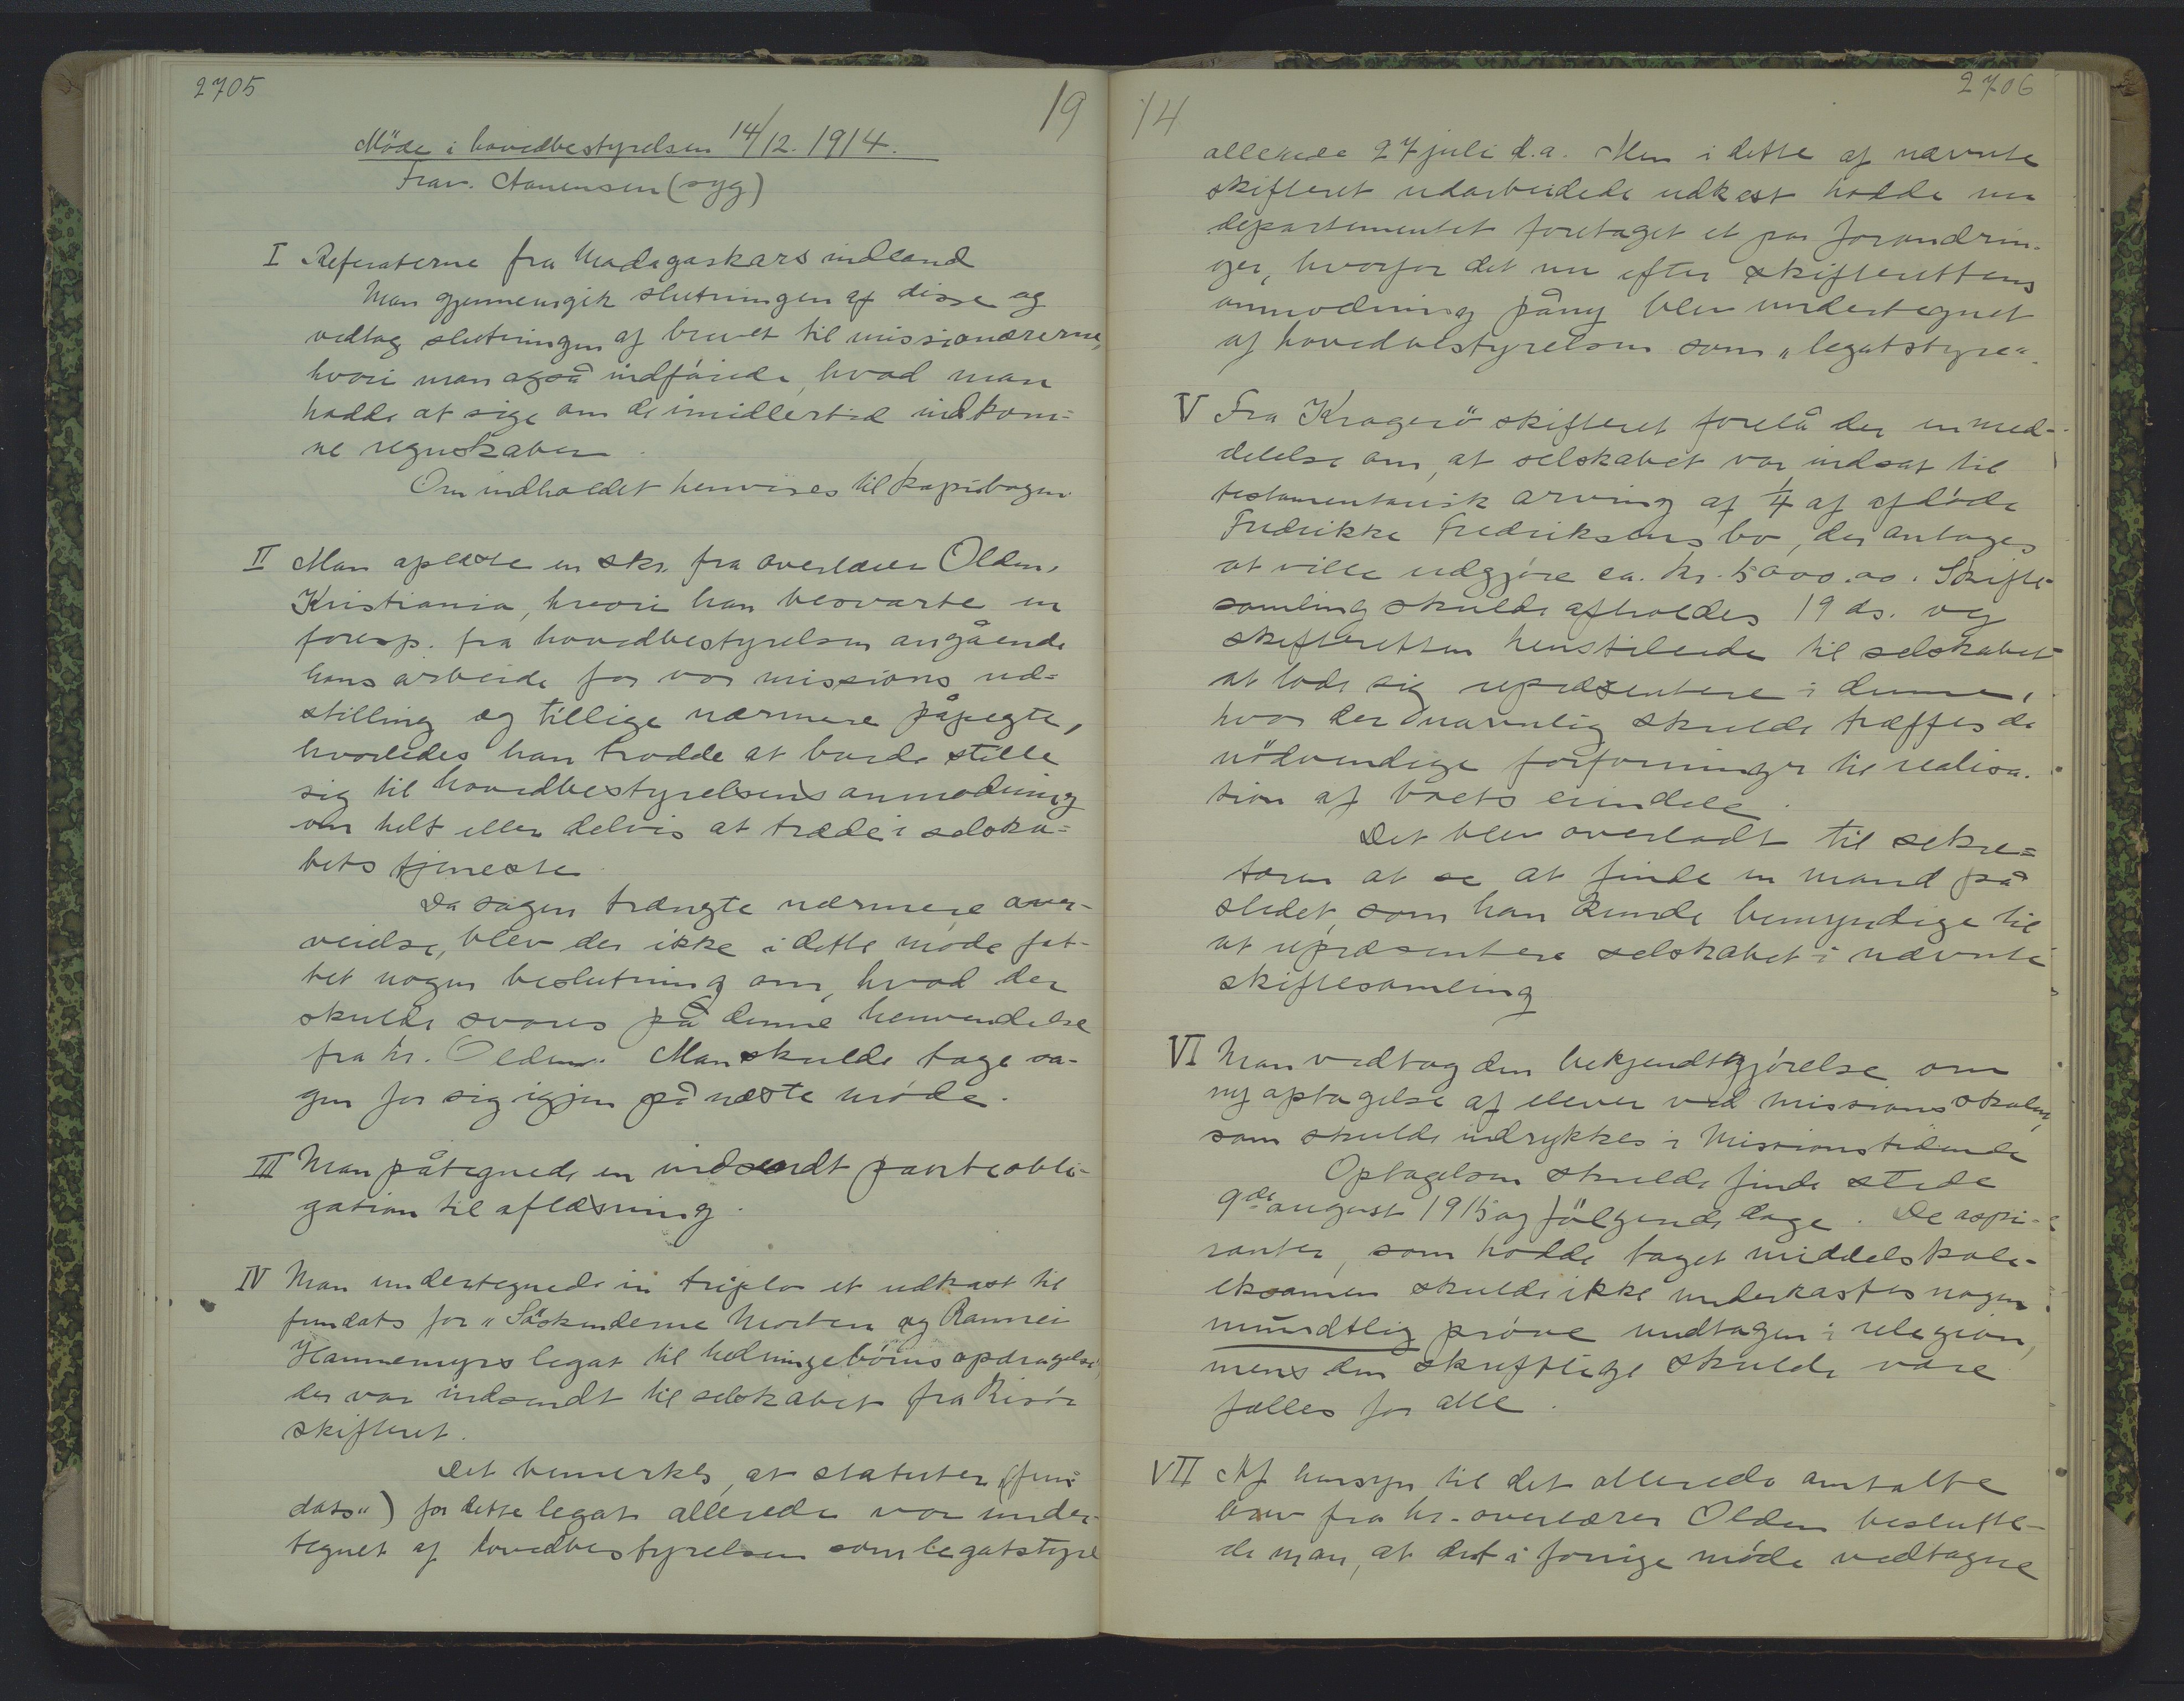 2705
19
Möde i hovedbestyrelsen 14/12. 1914.
Frav. Aanensen (syg)
I Referaterne fra Madagaskars indland
Man gjennemgik slutningen af disse og
vedtog slutningen af brevet til missionærerne,
hvori man også indförede, hvad man
hadde at sige om de imidlertid indkom=
ne regnskaber.
Om indholdet henvises til kopibogen.
II Man oplæste en skr. fra overlærer Olden,
Kristiania, hvori han besvarte en
foresp. fra hovedbestyrelsen angående
hans arbeide for vor missions ud=
stilling og tillige nærmere påpegte,
hvorledes han trodde at burde stille
sig til hovedbestyrelsens anmodning
om helt eller delvis at træde i selska=
bets tjeneste.
Da sagen trængte nærmere over-
veielse, blev der ikke i dette möde fat-
tet nogen beslutning om, hvad der
skulde svares på denne henvendelse
fra hr. Olden. Man skulde tage sa-
gen for sig igjen på næste möde.
III Man påtegnede en indsendt panteobli-
gation til aflæsning.
IV Man undertegnede in triplo et udkast til
fundats for "Söskenderne Morten og Rannei
Hannemyrs legat til hedningebörns opdragelse",
der var indsendt til selskabet fra Risör
skifteret.
Det bemerkes, at statuter ("fun=
dats") for dette legat allerede var under-
tegnet af hovedbestyrelsen som legatstyre
14
2706
allerede 27 juli d.a. Men i dette af nævnte
skifteret udarbeidede udkast hadde nu
departementet foretaget et par forandrin-
ger, hvorfor det nu efter skifterettens
anmodning påny blev undertegnet
af hovedbestyrelsen som "legatstyre".
V Fra Kragerö skifteret forelå der en med-
delelse om, at selskabet var indsat til
testamentarisk arving af 1/4 af afdöde
Fredrikke Fredriksens bo, der antages
at ville udgjöre ca. kr. 5000.00. Skifte-
samling skulde afholdes 19 ds. og
skifteretten henstillede til selskabet
at lade sig repræsentere i denne,
hvor der navnlig skulde træffes de
nödvendige forföininger til realisa-
tion af boets eiendele.
Det blev overladt til sekre=
tæren at se at finde en mand på
stedet, som han kunde bemyndige til
at repræsentere selskabet i nævnte
skiftesamling
VI Man vedtog den bekjendtgjörelse om
ny optagelse af elever ved missionsskolen,
som skulde indrykkes i Missionstidende
Optagelsen skulde finde sted
9de august 1915 og fölgende dage. De aspi-
ranter, som hadde taget middelskole-
eksamen skulde ikke underkastes nogen
mundtlig pröve undtagen i religion,
mens den skriftlige skulde være
fælles for alle.
VII Af hensyn til det allerede omtalte
brev fra hr. overlærer Olden beslutte-
de man, at det i forrige möde vedtagne